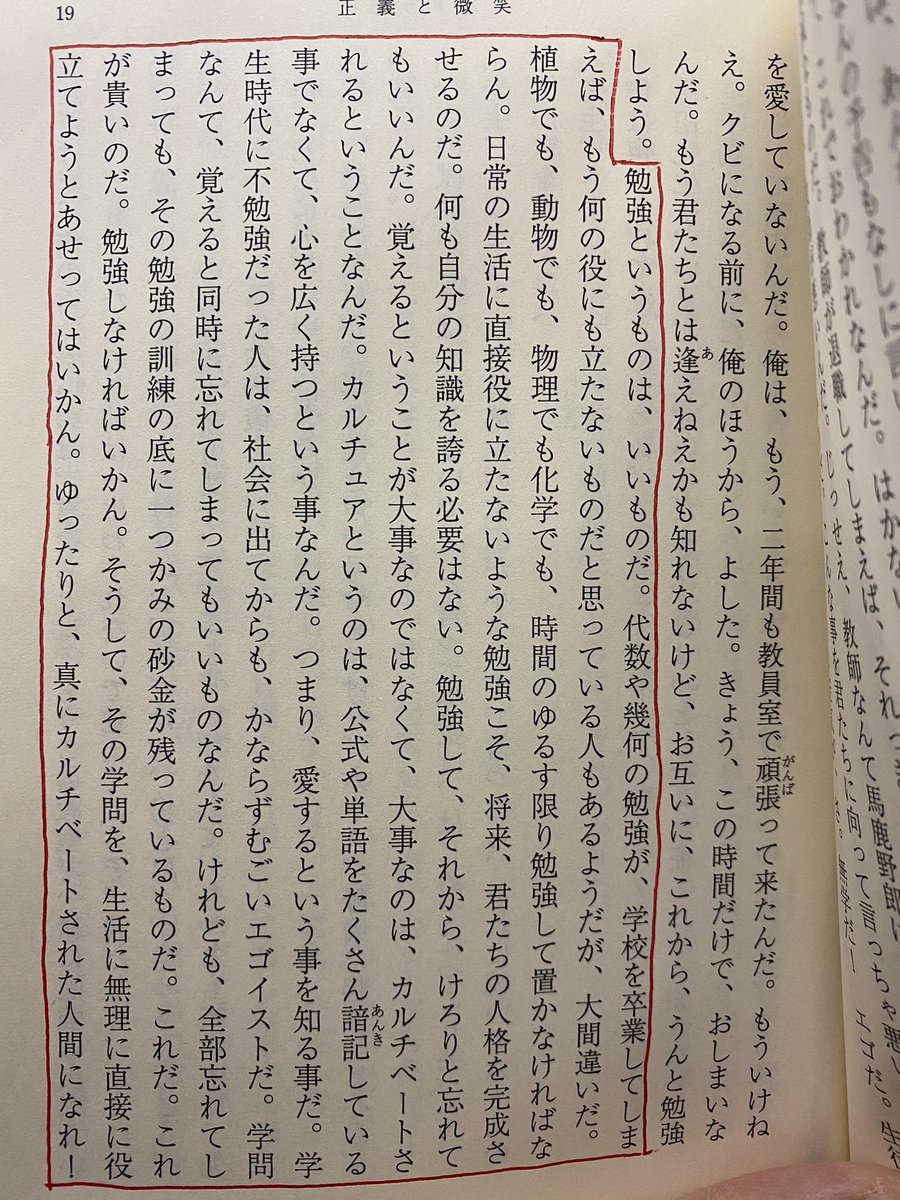 19
正義と微笑
を愛していないんだ。俺は、もう、二年間も教員室で頑張って来たんだ。もういけね
え。クビになる前に、俺のほうから、よした。きょう、この時間だけで、おしまいな
んだ。もう君たちとは逢えねえかも知れないけど、お互いに、これから、うんと勉強
しよう。勉強というものは、いいものだ。代数や幾何の勉強が、学校を卒業してしま
えば、もう何の役にも立たないものだと思っている人もあるようだが、大間違いだ。
植物でも、動物でも、物理でも化学でも、時間のゆるす限り勉強して置かなければな
らん。日常の生活に直接役に立たないような勉強こそ、将来、君たちの人格を完成さ
せるのだ。何も自分の知識を誇る必要はない。勉強して、それから、けろりと忘れて
もいいんだ。覚えるということが大事なのではなくて、大事なのは、カルチベートさ
れるということなんだ。カルチュアというのは、公式や単語をたくさん諳記している
事でなくて、心を広く持つという事なんだ。つまり、愛するという事を知る事だ。学
生時代に不勉強だった人は、社会に出てからも、かならずむごいエゴイストだ。学問
なんて、覚えると同時に忘れてしまってもいいものなんだ。けれども、全部忘れてし
まっても、その勉強の訓練の底に一つかみの砂金が残っているものだ。これだ。これ
が貴いのだ。勉強しなければいかん。そうして、その学問を、生活に無理に直接に役
立てようとあせってはいかん。ゆったりと、真にカルチベートされた人間になれ！